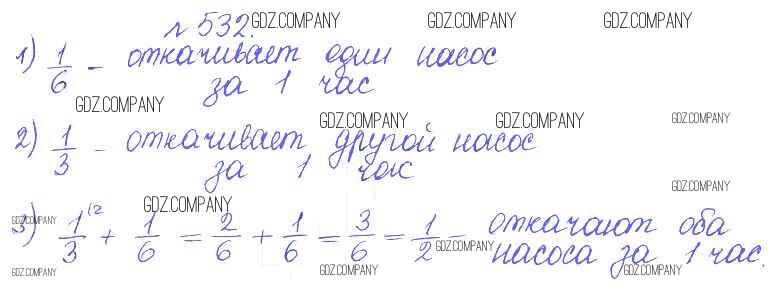 № 532. GDZ.COMPANY GDZ.COMPANY GDZ.COMPANY
1) 1/6 – откачивает один насос
за 1 час
GDZ.COMPANY
GDZ.COMPANY GDZ.COMPANY GDZ.COMPANY
2) 1/3 – откачивает другой насос
за 1 час
GDZ.COMPANY
GDZ.COMPANY
GDZ.COMPANY
3) 1/3 (2 + 1/6 = 2/6 + 1/6 = 3/6 = 1/2 – откачают оба
насоса за 1 час.
GDZ.COMPANY
GDZ.COMPANY GDZ.COMPANY GDZ.COMPANY